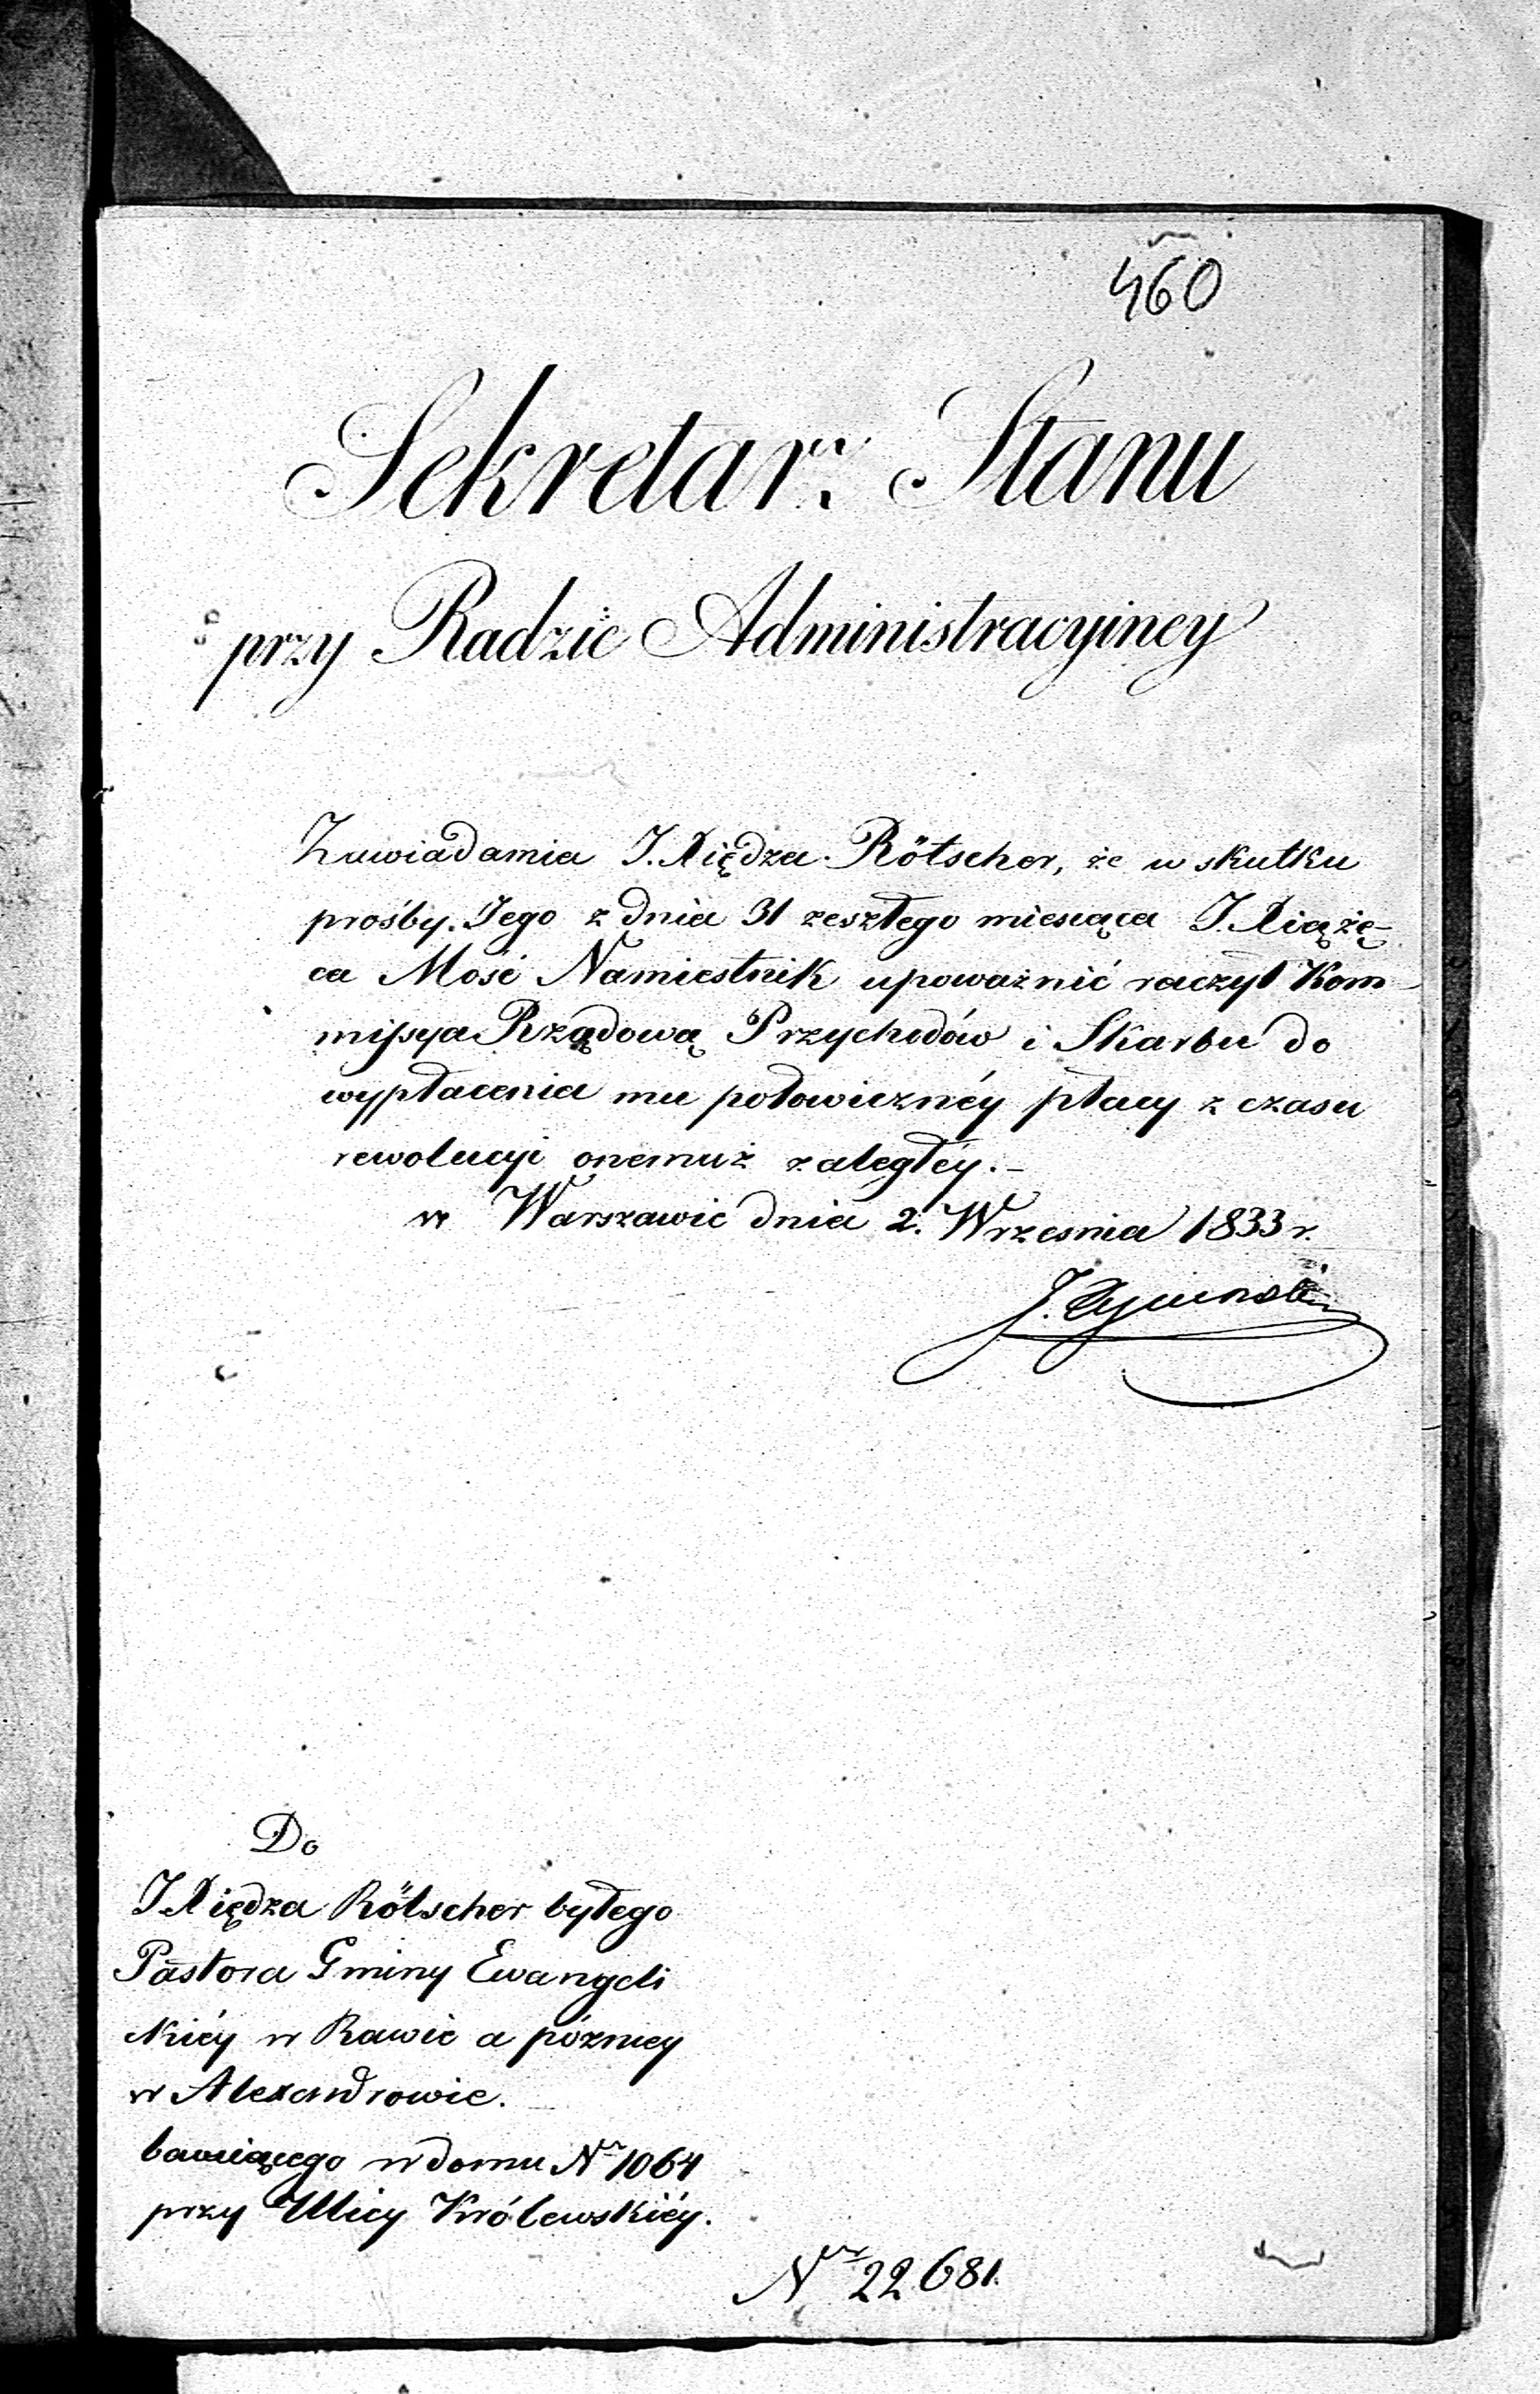 460
Sekretarz Stanu
przy Radzie Administracyiney
Zawiadamia J. Xiędza Rötscher, że w skutku
prośby Jego z dnia 31 zeszłego miesiąca J. Xiążę-
ca Mość Namiestnik upoważnić raczył Kom-
missya Rządową Przychodów i Skarbu do
wypłacenia mu połowicznéy płacy z czasu
rewolucyi onemuż zaległéy.-
w Warszawie dnia 2. Wrzesnia 1833 r.
J.
Do
J Xiędza Rötscher byłego
Pastora Gminy Ewangeli
ckiéy w Rawie a pózniey
w Alexandrowie.
bawiącego w domu Nr 1064
przy Ulicy Królewskiéy.
Nr 22681.